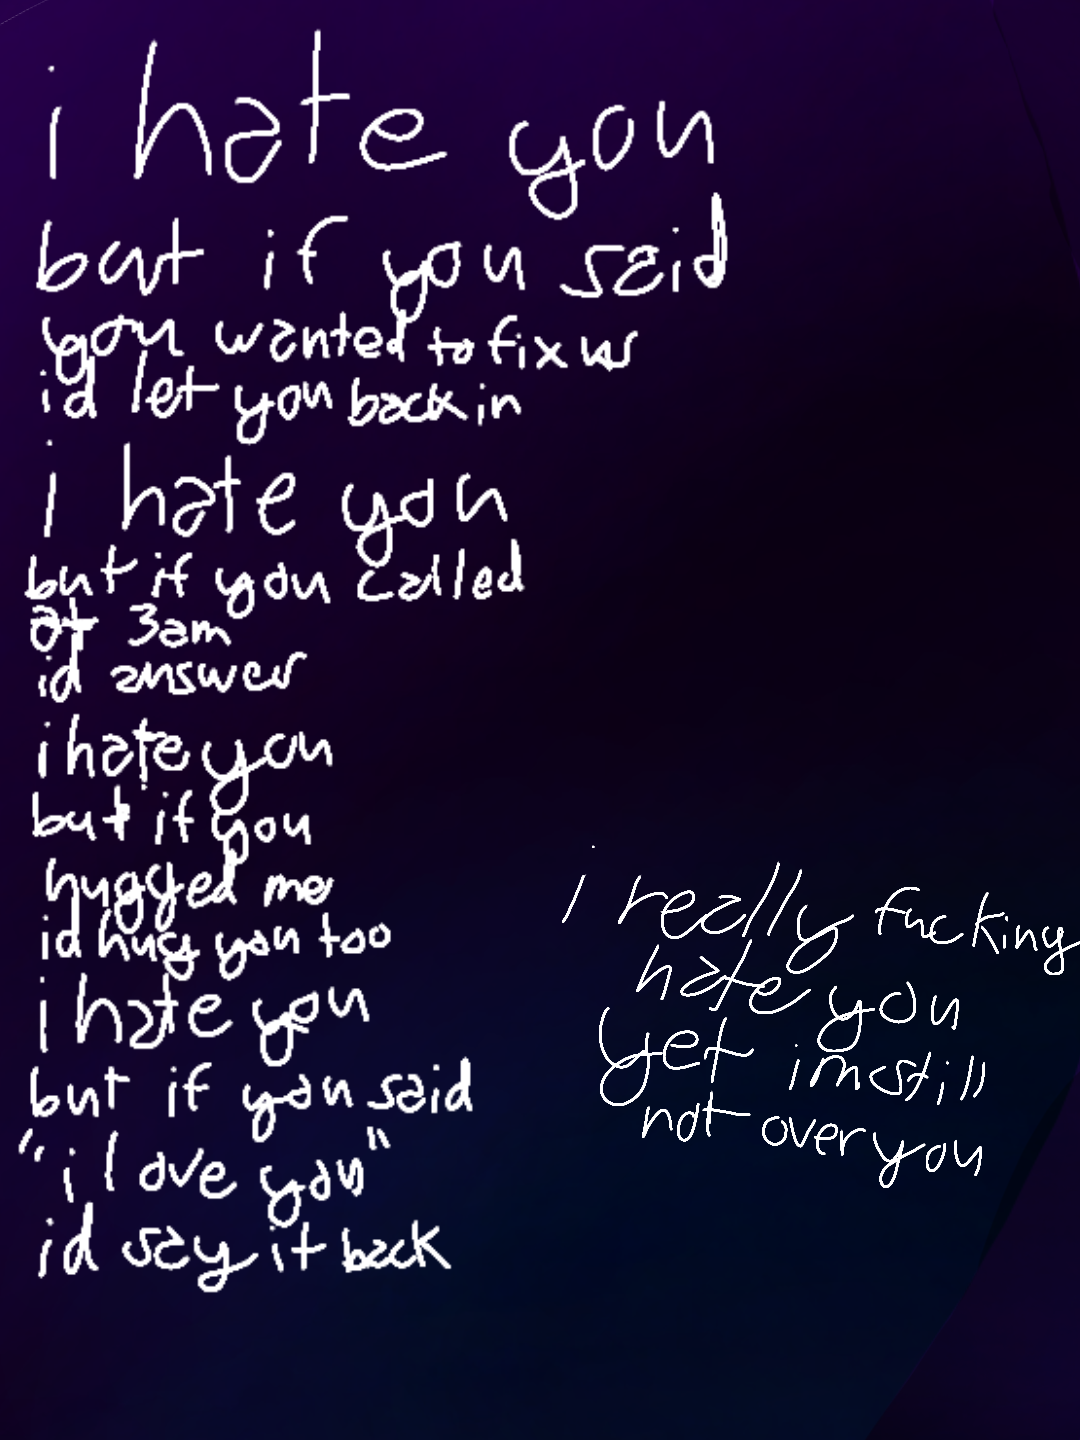 i hate you
but if you said
you wanted to fix us
id let you back in
i hate you
but if you called
at 3am
id answer
i hate you
but if you
hugged me
id hug you too
i hate you
but if you said
"i love you"
id say it back
i really fucking
hate you
yet im still
not over you